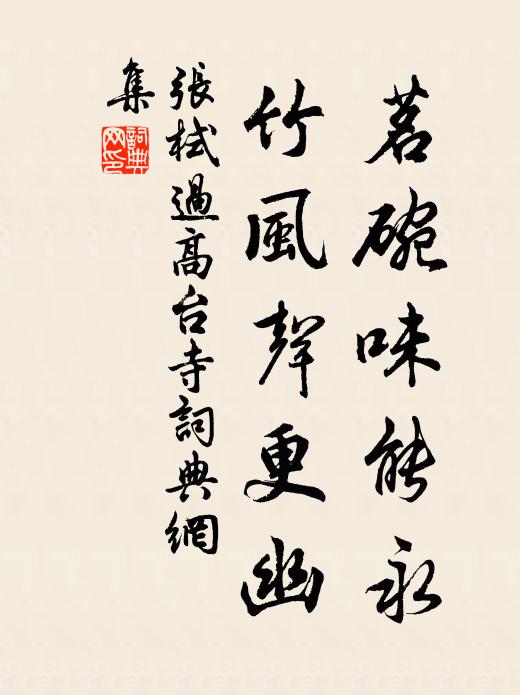 茗碗味能永
竹風聲更幽
張栻過高台寺詞典網
集
詞典
网印